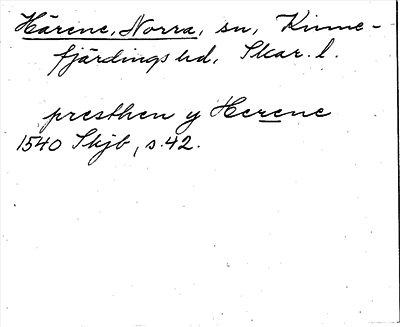 Härene, Norra, sn, Kinne-
fjärdings hd, Skar. l.
presthen y Herene
1540 Skjb, s. 42.